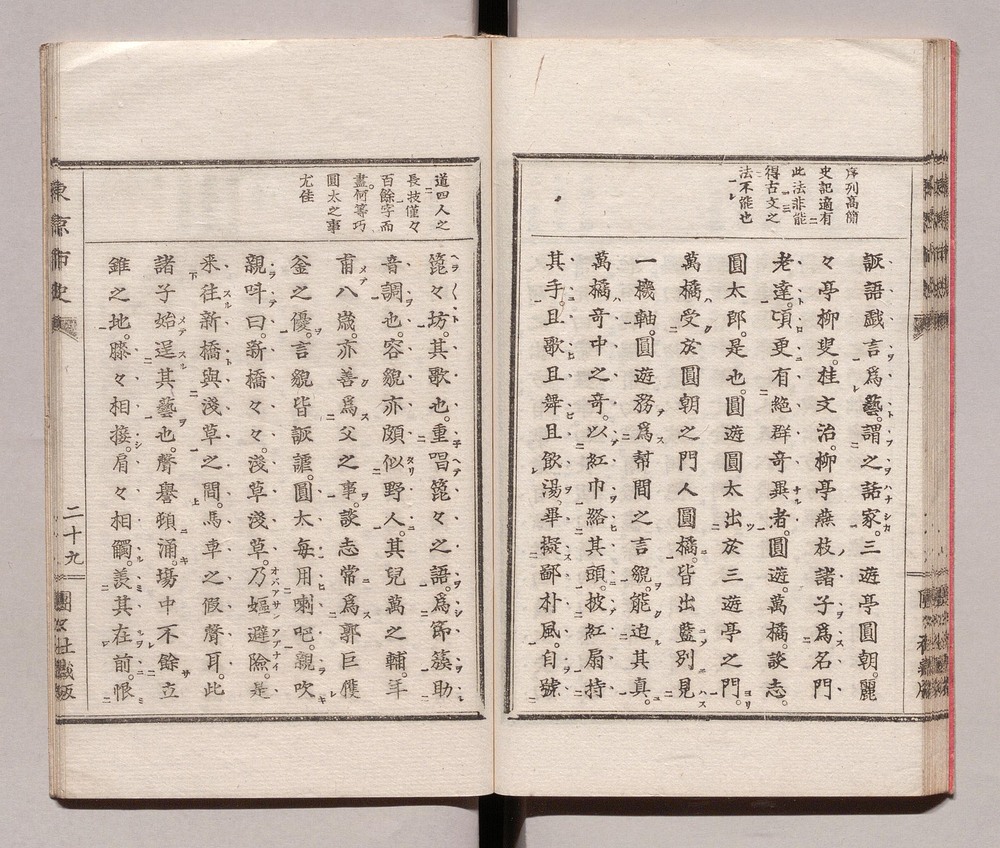 序列高簡
史記適有
此法非能
得古文之
法不能也
詼語戲言爲藝。謂之話家。三遊亭圓朝。麗
々亭柳叟。桂文治。柳亭燕枝諸子爲名門
老達。頃更有絶群奇異者。圓遊。萬橘。談志。
圓太郎。是也。圓遊圓太出於三遊亭之門。
萬橘受於圓朝之門人圓橘。皆出藍別見
一機軸。圓遊務爲幇間之言貌。能迫其眞。
萬橘奇中之奇。以紅巾絡其頭。披紅扇持
其手。且歌且舞且飲湯。畢擬鄙朴風。自號
道四人之
長技僅々
百餘字而
盡。何等巧
圓太之事
尤佳
箆々坊。其歌也。重唱箆々之語。爲節簇助
音調也。容貌亦頗似野人。其兒萬之輔。年
甫八歳。亦善爲父之事。談志常爲郭巨僕
釜之優。言貌皆詼謔。圓太毎用喇吧。親吹
親呌曰。新橋々々。淺草淺草。乃嫗避險。是
釆往新橋與淺草之間。馬車之假聲耳。此
諸子始逞其藝也。聲譽頓涌。塲中不餘立
錐之地。膝々相接。肩々相觸。羨其在前。恨
東京市史
二十九